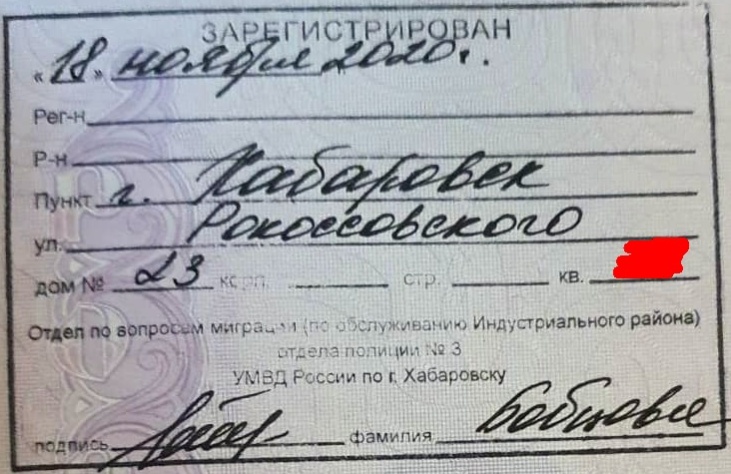 ЗАРЕГИСТРИРОВАН
«18» ноября 2020 г.
Рег-н
Р-н
Пункт г. Хабаровск
ул. Рокоссовского
дом № 23 корп. стр. кв.
Отдел по вопросам миграции (по обслуживанию Индустриального района)
отдела полиции № 3
УМВД России по г. Хабаровску
подпись фамилия